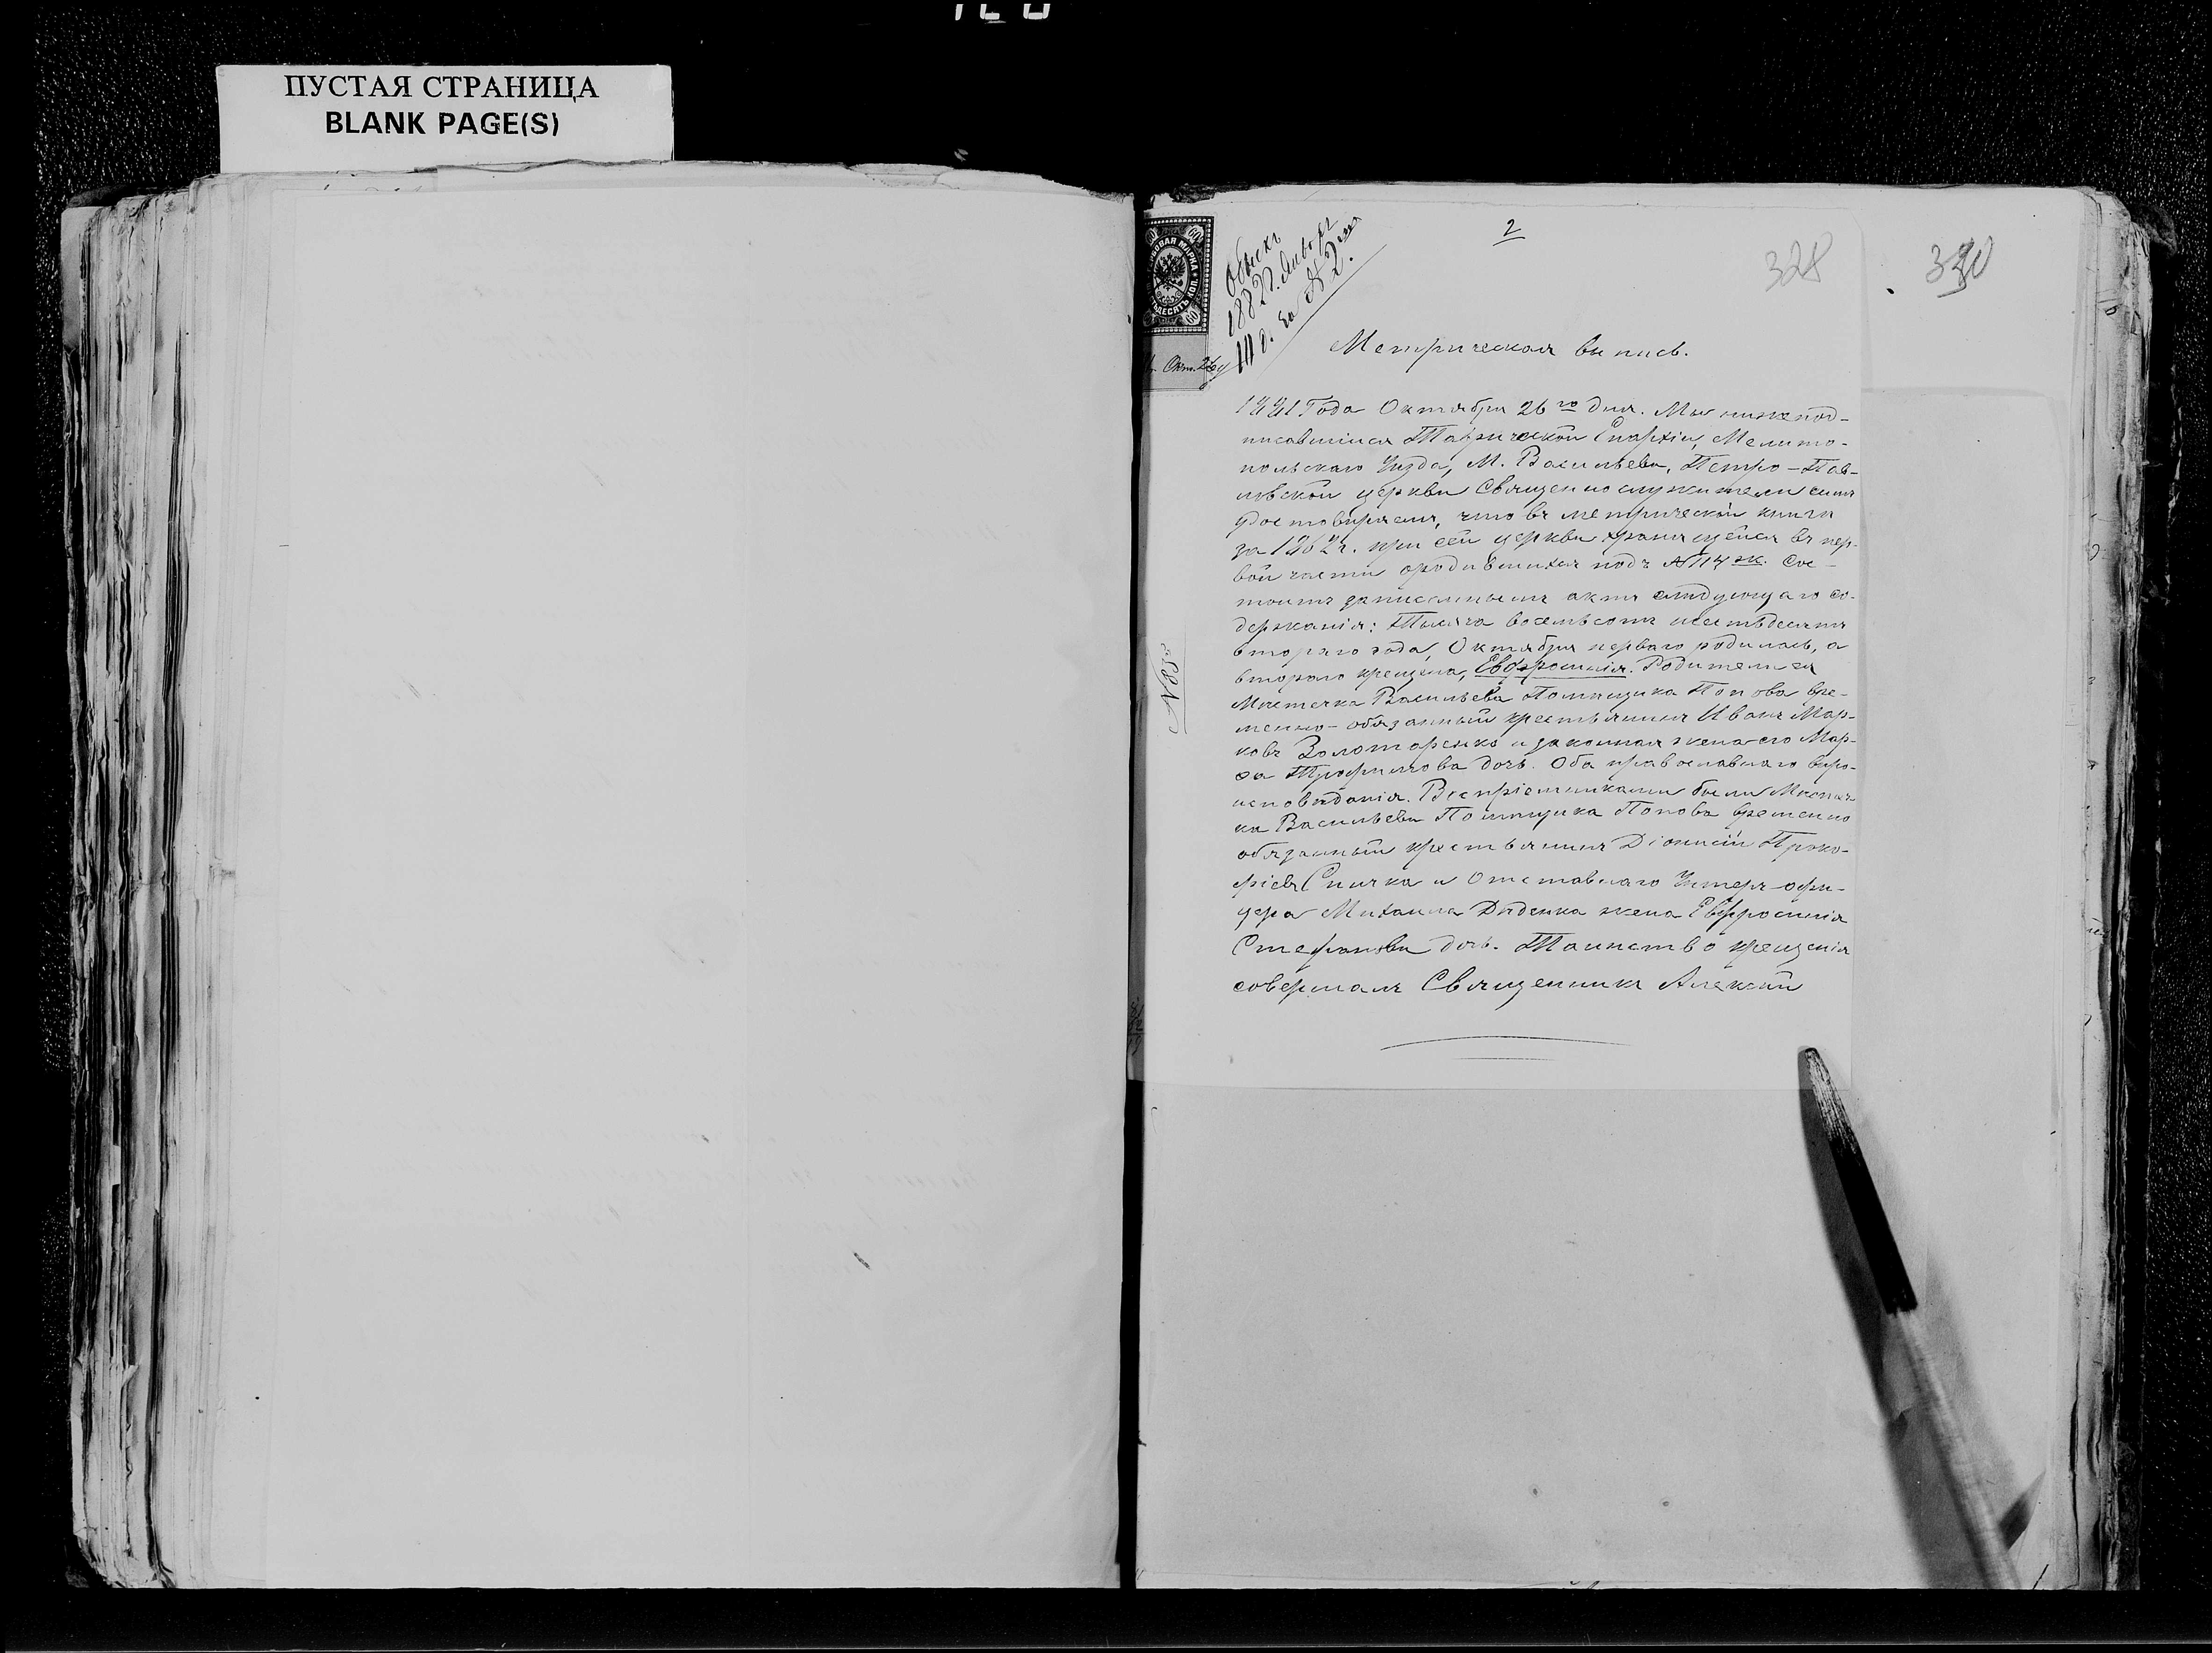 ПУСТАЯ СТРАНИЦА
BLANK PAGE(S)
2
328
Обыскъ
1882 г. Января
10 д. за № 2.
60 60
60
Окт. 26 д
№ 883
Метрическая выпись.
1881 Года Октября 26го дня. Мы нижепод-
писавшіися Таврической Епархіи, Мелито-
польскаго Уѣзда, М. Васильевки, Петро-Пав-
ловской церкви Священнослужители симъ
удостовѣряемъ, что въ метрической книгѣ
за 1862 г. при сей церкви хранящейся въ пер-
вой части о родившихся подъ № 114 ж. сос-
тоитъ записаннымъ актъ слѣдующаго со-
держанія: Тысяча восемьсотъ шестьдесятъ
втораго года, Октября перваго родилась, а
втораго крещена, Евфросинія. Родители ея
Мѣстечка Васильевки Помѣщика Попова вре-
менно-обязанный крестьянинъ Иванъ Мар-
ковъ Золотаренко и законная жена его Мар-
фа Трофимова дочь. Оба православнаго веро-
исповѣданія. Воспріемниками были Мѣстеч-
ка Васильевки Помѣщика Попова временно
обязанный крестьянинъ Діонисій Проко-
фіевъ Спичка и Отставнаго Унтеръ-офи-
цера Михаила Дяденка жена Евфросинія
Стефанова дочь. Таинство крещенія
совершалъ Священникъ Алексій